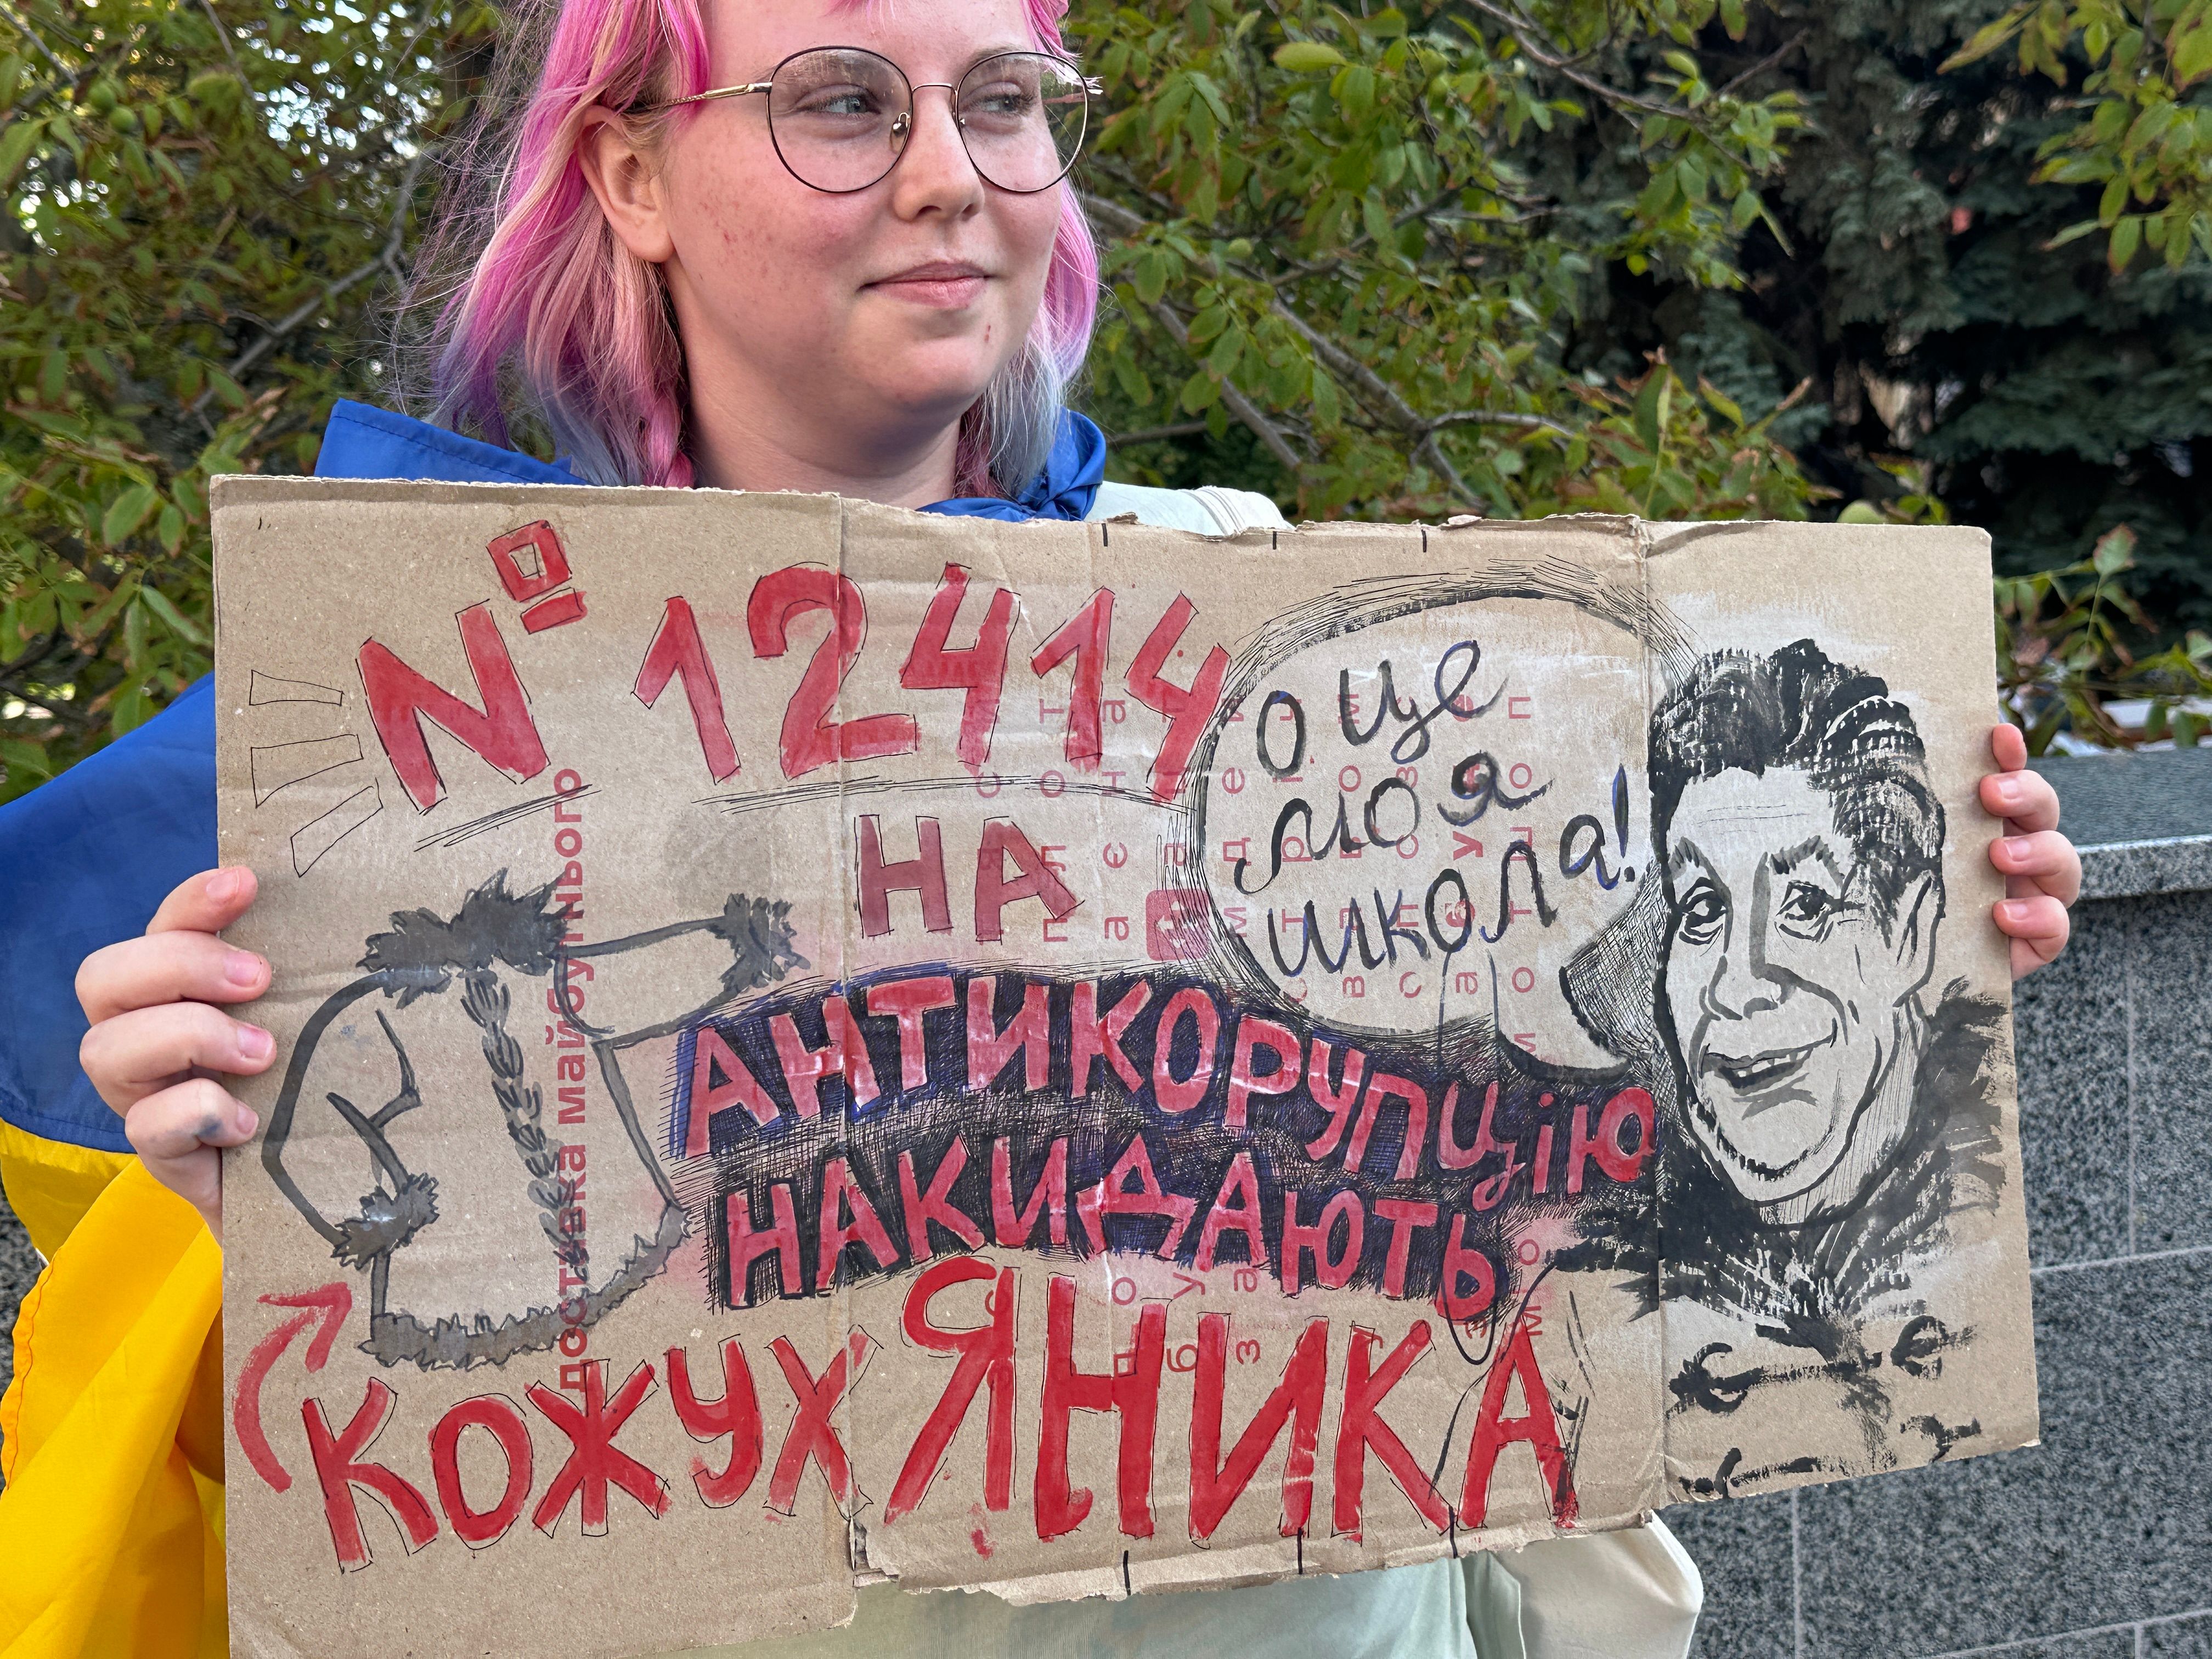 № 12414
НА
АНТИКОРУПЦІЮ
НАКИДАЮТЬ
КОЖУХ ЯНИКА
О це
моя
школа!
доставка майбутнього